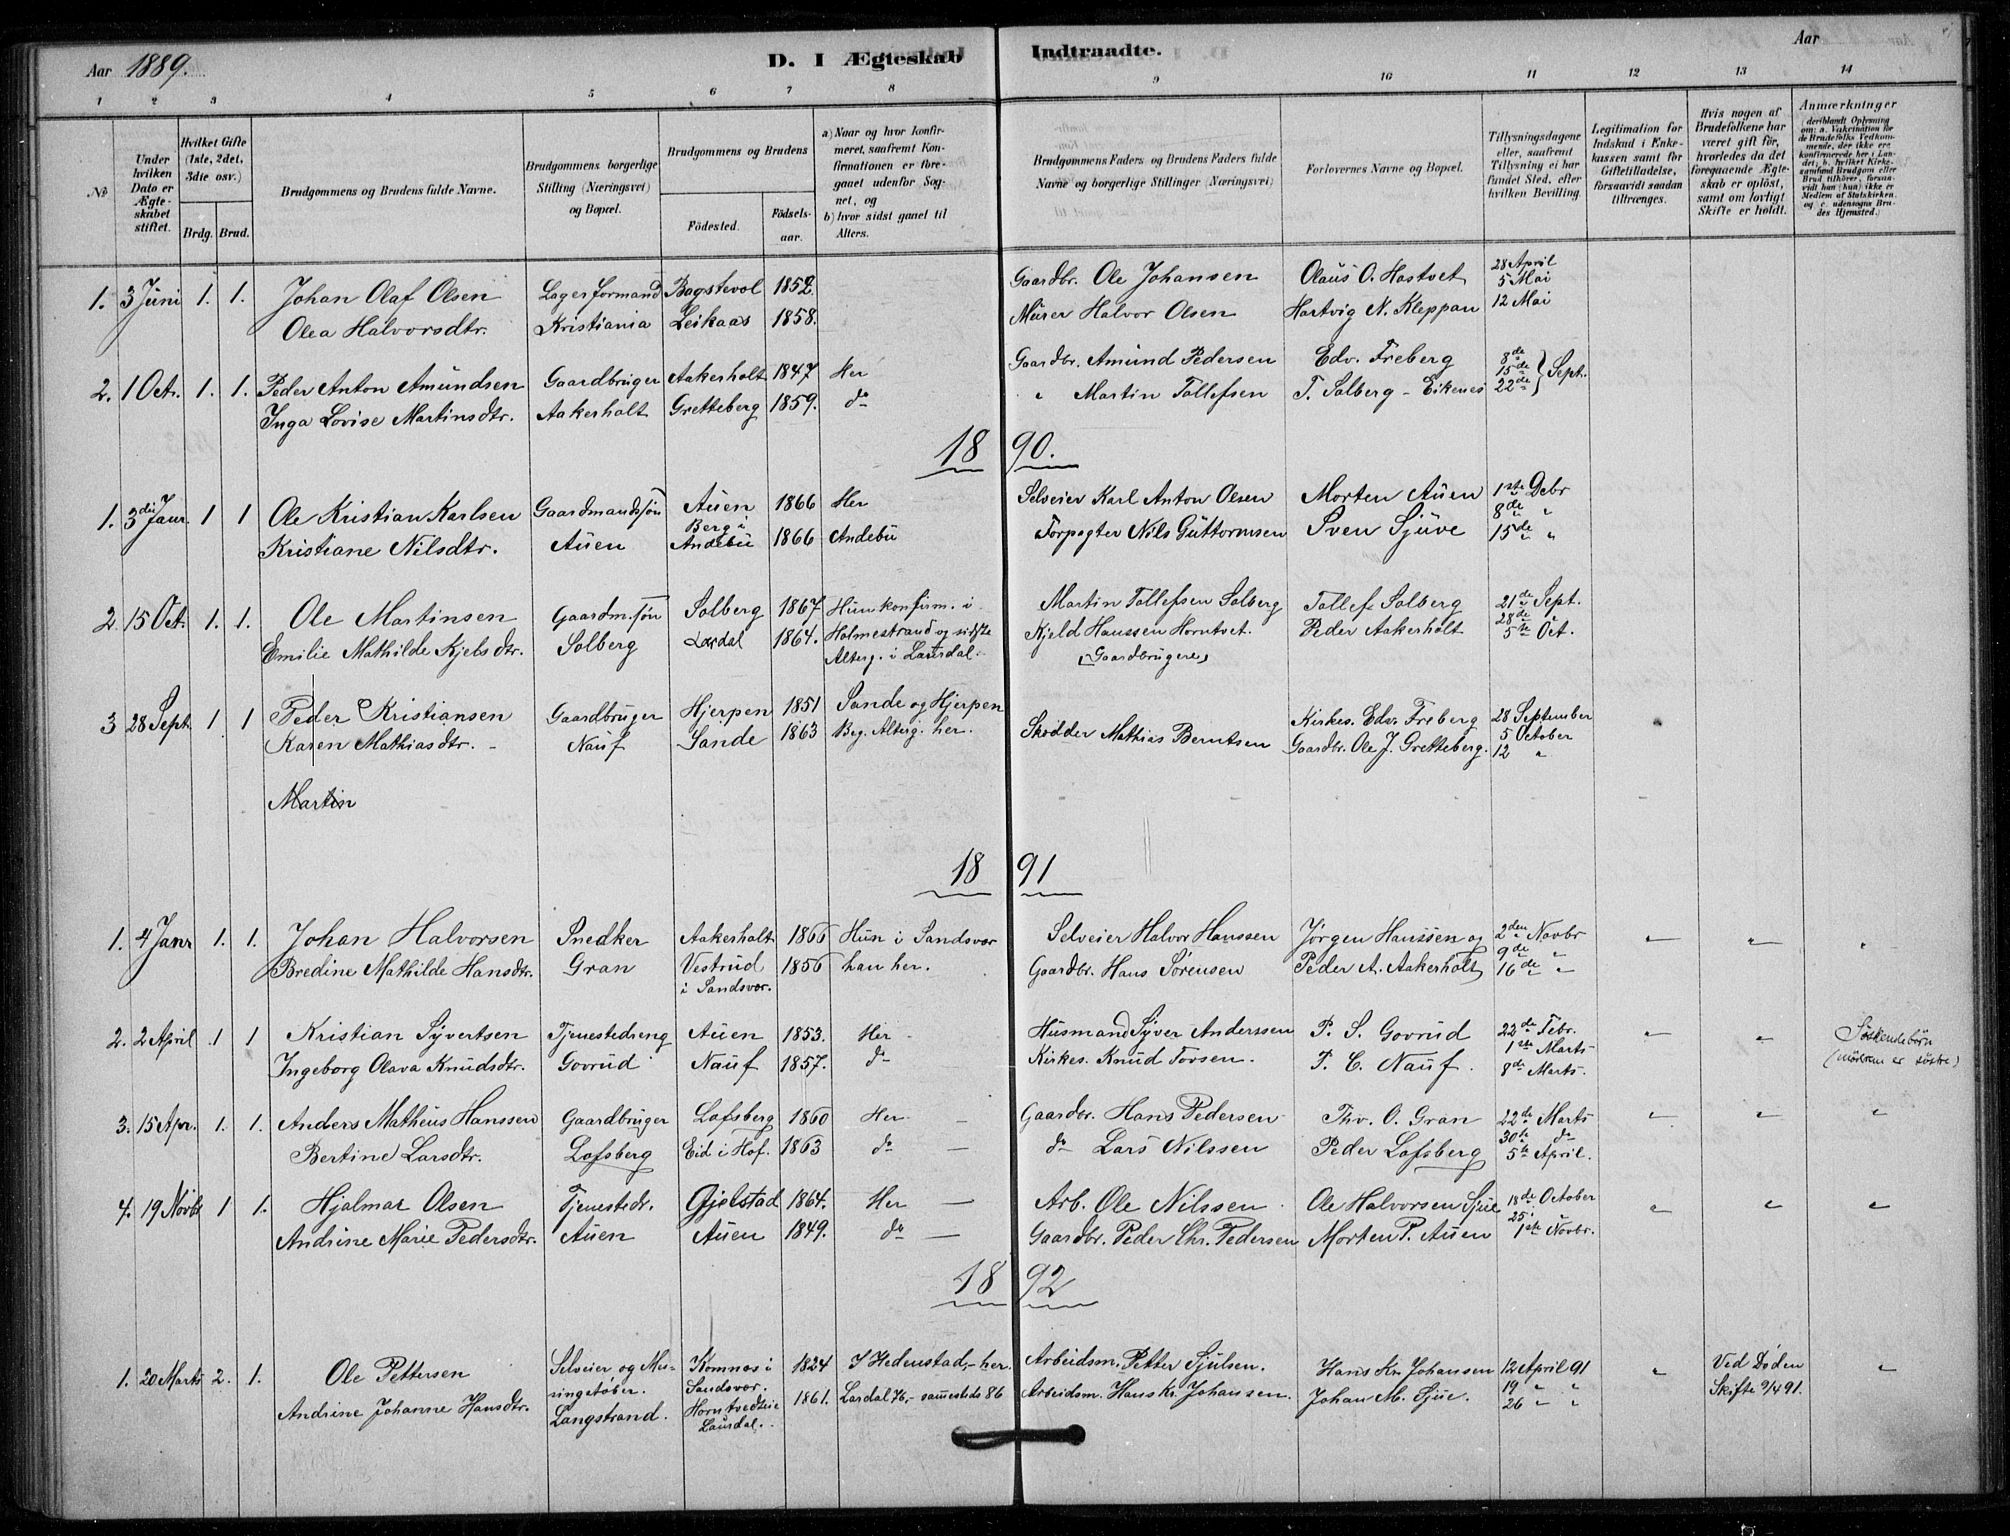 Aar 1889. D. I Ægteskab Indtraadte. Aar
1 2 3 4 5 6 7 8 9 10 11 12 13 14
No
Under hvilken Dato er Ægteskabet stiftet.
Hvilket Gifte (1ste, 2det, 3die osv.)
Brdg. Brud.
Brudgommens og Brudens fulde Navne.
Brudgommens borgerlige Stilling (Næringsvei) og Bopæl.
Brudgommens og Brudens
Födested. Födselsaar.
a) Naar og hvor konfirmeret, saafremt Konfirmationen er foregaaet udenfor Sognet, og
b) hvor sidst gaaet til Alters.
Brudgommens Faders og Brudens Faders fulde Navne og borgerlige Stillinger (Næringsvei)
Forlovernes Navne og Bopæl.
Tillysningsdagene eller, saafremt Tillysning ei har fundet Sted, efter hvilken Bevilling
Legitimation for Indskud i Enkekassen samt for Giftetilladelse, forsaavidt saadan tiltrænges.
Hvis nogen af Brudefolkene har været gift før, hvorledes da det foregaaende Ægteskab er opløst, samt om lovligt Skifte er holdt.
Anmærkninger
(deriblandt Oplysning om: a. Vakcination for de Brudefolks Vedkommende, der ikke ere konfirmerede her i Landet; b. hvilket Kirkesamfund Brudgom eller Brud tilhører, forsaavidt han (hun) ikke er Medlem af Statskirken, og c. udensogns Brudes Hjemsted.)
1. 3 Juni 1. 1. Johan Olaf Olsen Lagerformand Bogstvol 1852. Gaardbr. Ole Johansen Olaus O. Hostvet 28 April
5 Mai
Olea Halvorsdtr. Kristiania Leikaas 1858. Murer Halvor Olsen Hartvig N. Kleppan 12 Mai
2. 1 Oct. 1. 1. Peder Anton Amundsen Gaardbruger Aakerholt 1847 Her Gaardbr. Amund Pedersen Edv. Freberg 8de
15de } Sept.
Inga Lovise Martinsdtr. Aakerholt Gretteberg 1859. do " Martin Tollefsen T. Solberg - Eikenes 22de
18 90.
1. 3die Janr. 1 1 Ole Kristian Karlsen Gaardmandssøn Auen 1866 Her Selveier Karl Anton Olsen Morten Auen 1ste Debr
8de "
Kristiane Nilsdtr. Auen Berg i Andebu 1866 Andebu Forpagter Nils Guttormsen Sven Sjuve 15de "
2. 15 Oct. 1. 1. Ole Martinsen Gaardm.søn Solberg 1867 Hun konfirm. i Martin Tollefsen Solberg Tollef Solberg 21de Sept.
28de
Emilie Mathilde Kjelsdtr. Solberg Lardal 1864. Holmestrand og sidste Kjeld Hanssen Horntvet. Peder Aakerholt 5te Oct.
Alterg. i Laurdal. (Gaardbrugere)
3 28 Sept. 1 1 Peder Kristiansen Gaardbruger Hjerpen 1851 Sande og Hjerpen Kirkes. Edv. Freberg 28 September
Karen Mathiasdtr. - Nauf Sande 1863 Beg. Alterg. her. Skodder Mathias Berntsen Gaardbr. Ole J. Gretteberg. 5 October
12 "
Martin
18 91
1. 4 Janr 1. 1. Johan Halvorsen Snedker Aakerholt 1866 Hun i Sandsvær Selveier Halvor Hanssen Jørgen Hanssen og 2den Novbr " " "
9de "
Bredine Mathilde Hansdtr. Gran Vestrud 1856 han her. Gaardbr. Hans Sørensen Peder A. Aakerholt 16de "
i Sandsvær.
2. 2 April 1 1 Kristian Syvertsen Tjenestedreng Auen 1853. Her Husmand Syver Anderssen P. S. Govrud 22de Febr. " " Søskendebørn
1ste Marts
Ingeborg Olava Knudsdtr. Govrud Nauf 1857. do Kirkes. Knud Tovsen. P. C. Nauf. 8de Marts. (mødrene er søstre)
3. 15 Apr. 1. 1. Anders Matheus Hanssen Gaardbruger Lofsberg 1860 Her - Gaardbr. Hans Pedersen Thv. O. Gran 22de Marts " " "
30te do
Bertine Larsdtr. Lofsberg Eid i Hof. 1863 do - do Lars Nilssen Peder Lofsberg 5te April.
4. 19 Novbr 1 1. Hjalmar Olsen Tjenestedr. Gjelstad 1864. Her - Arb. Ole Nilssen Ole Halvorsen Sjue 18de October " " "
25
Andrine Marie Pedersdtr. Auen Auen 1849. do - Gaardbr. Peder Chr. Pedersen Morten P. Auen 1ste Novbr.
18 92
1. 20 Marts 2. 1. Ole Pettersen Selveier og Mes- Komnæs i 1824 I Hedenstad, - her. Arbeidsm. Petter Sjulsen. Hans Kr. Johansen 12 April 91 " Ved Døden "
singstøber. Sandsvær. 19 " "
Andrine Johanne Hansdtr. Langstrand. Horntvedteie 1861. Lardal 76, - sammesteds 86 Arbeidsm. Hans Kr. Johansen. Johan M. Sjue. 26 " " Skifte 9/4 91.
Laurdal.